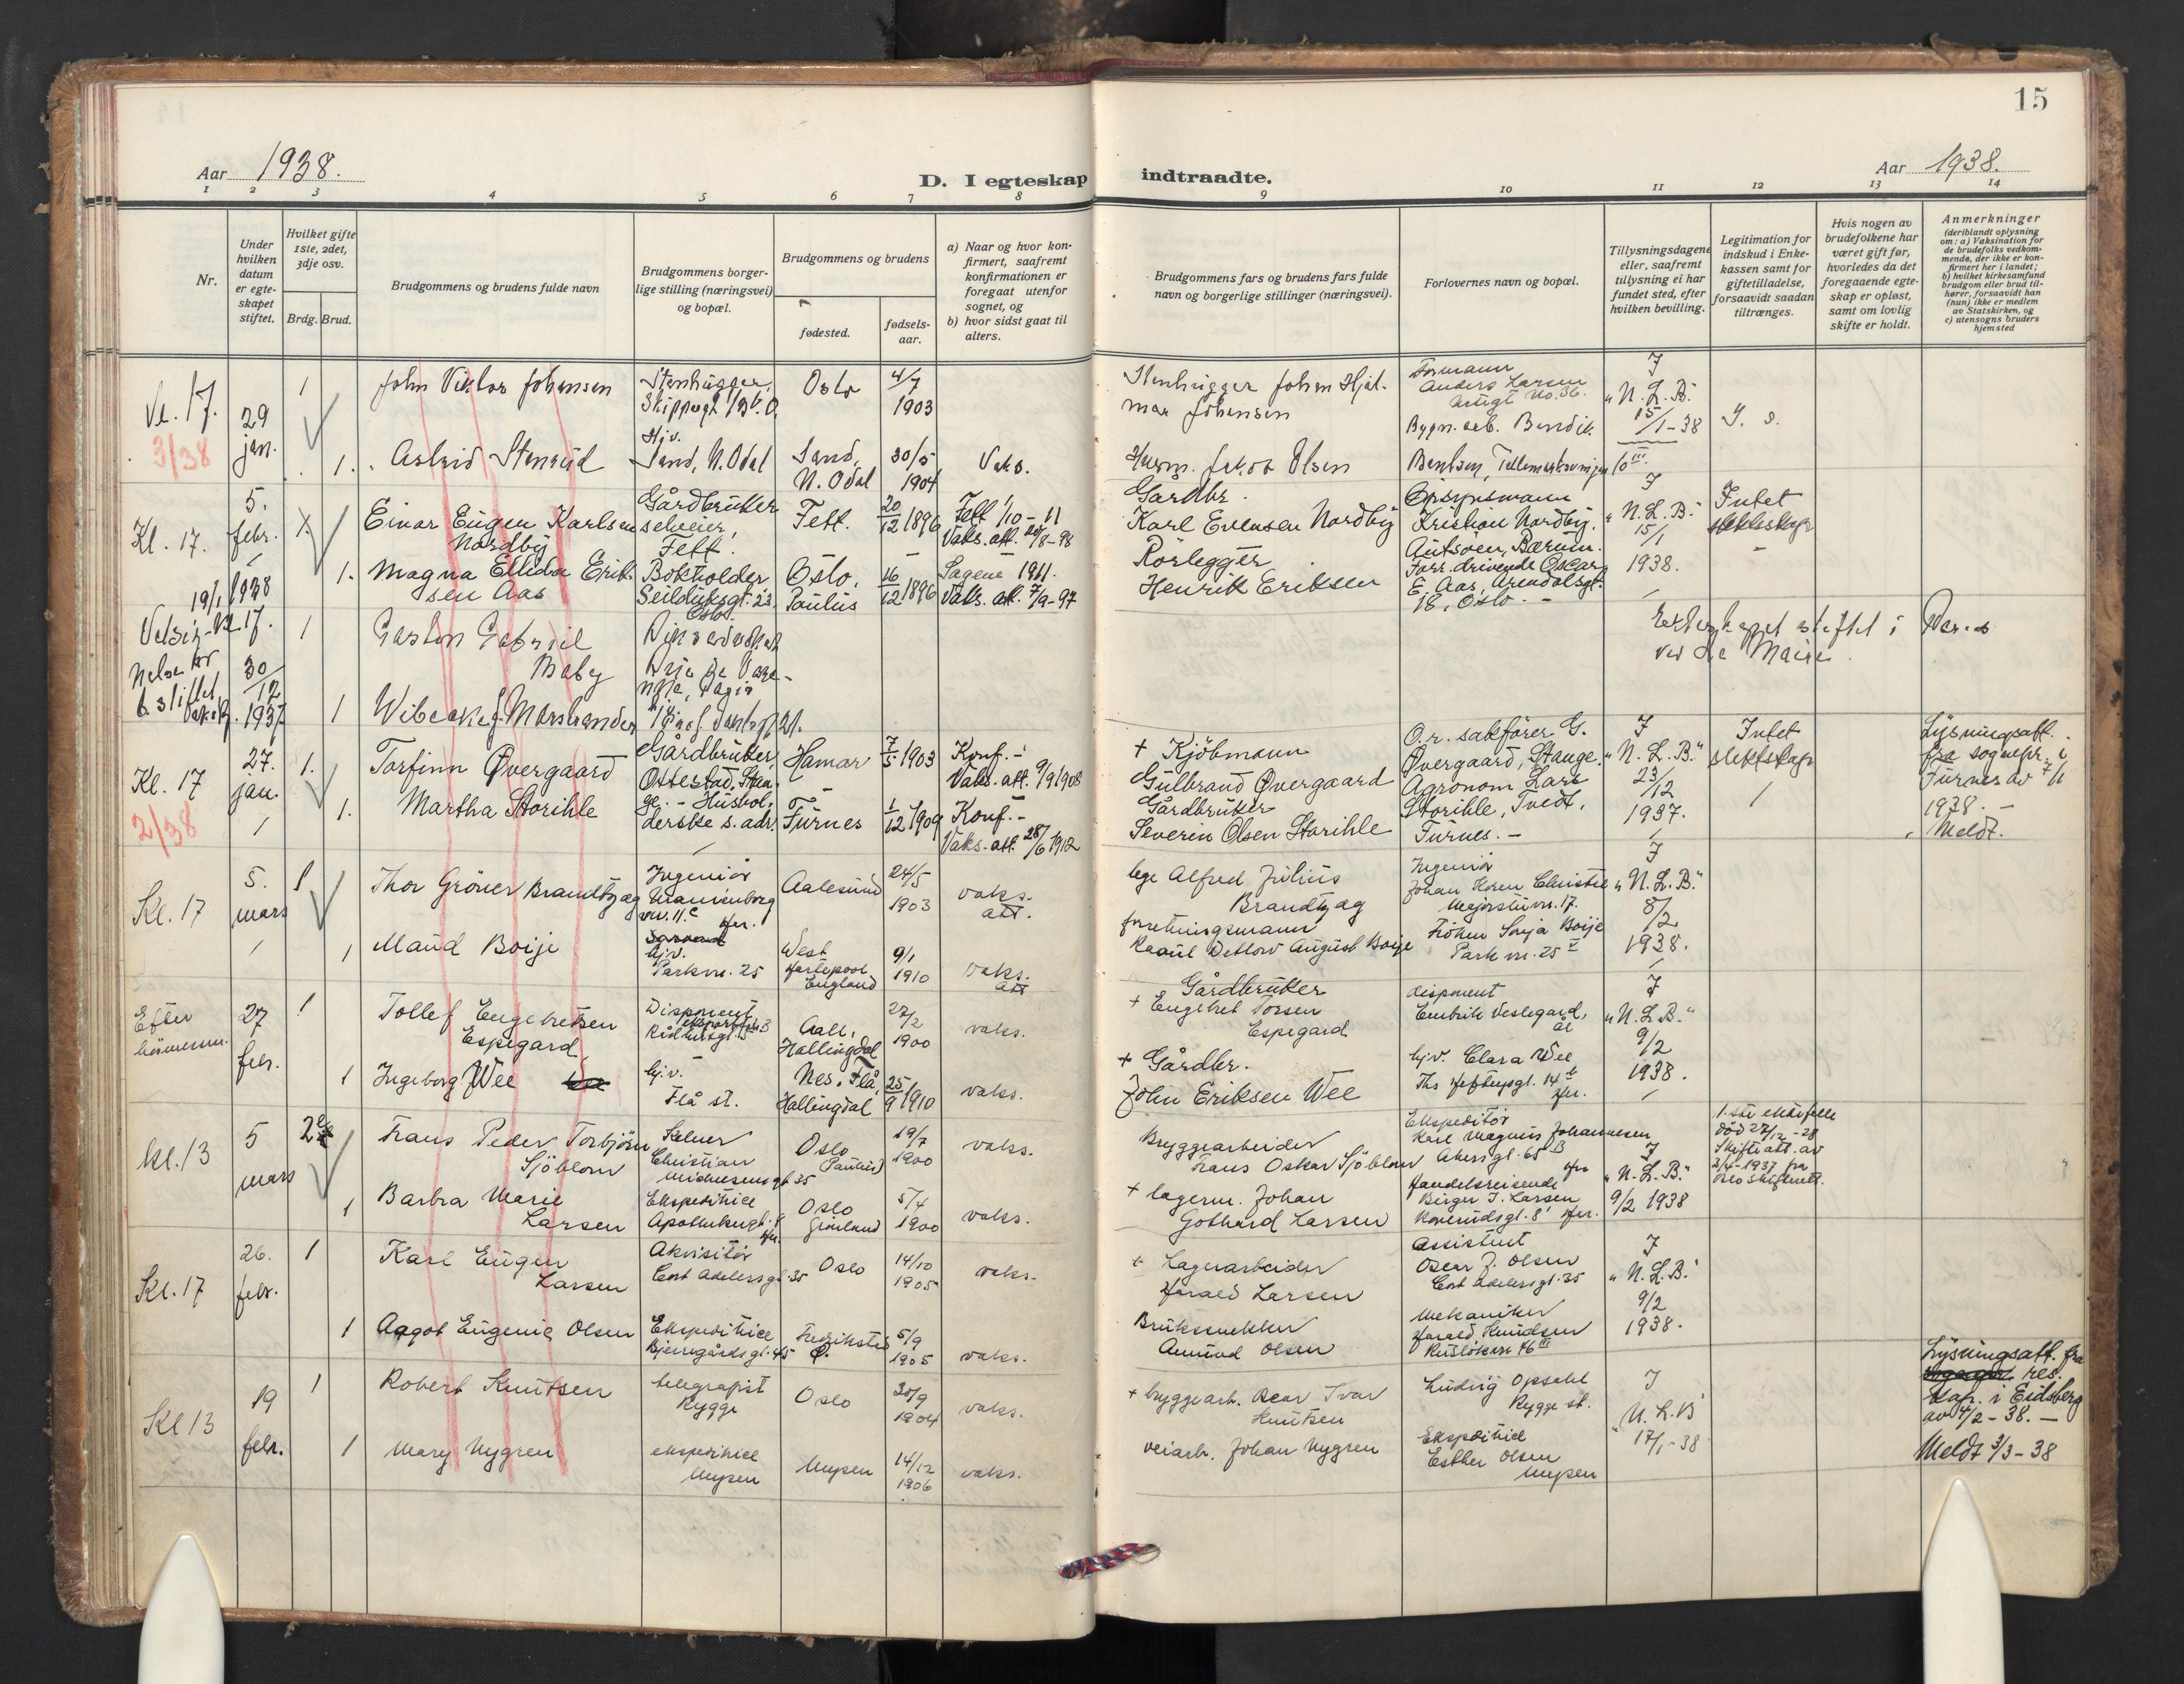 15
Aar 1938.
D. I egteskap indtraadte.
Aar 1938.
1 2 3 4 5 6 7 8 9 10 11 12 13 14
Nr.
Under hvilken datum er egteskapet stiftet.
Hvilket gifte 1ste, 2det, 3dje osv.
Brdg. Brud.
Brudgommens og brudens fulde navn
Brudgommens borgerlige stilling (næringsvei) og bopæl.
Brudgommens og brudens
fødested.
fødselsaar.
a) Naar og hvor konfirmert, saafremt konfirmationen er foregaat utenfor sognet, og
b) hvor sidst gaat til alters.
Brudgommens fars og brudens fars fulde navn og borgerlige stillinger (næringsvei).
Forlovernes navn og bopæl.
Tillysningsdagene eller, saafremt tillysning ei har fundet sted, efter hvilken bevilling.
Legitimation for indskud i Enkekassen samt for giftetilladelse, forsaavidt saadan tiltrænges.
Hvis nogen av brudefolkene har været gift før, hvorledes da det foregaaende egteskap er opløst, samt om lovlig skifte er holdt.
Anmerkninger
(deriblandt oplysning om: a) Vaksination for de brudefolks vedkommende, der ikke er konfirmert her i landet;
b) hvilket kirkesamfund brudgom eller brud tilhører, forsaavidt han (hun) ikke er medlem av Statskirken, og
c) utensogns bruders hjemsted
Kl. 17.
3/38
29 jan.
1
John Viktor Johansen
Stenhugger,
Oslo
4/7 1903
Stenhugger Johan Hjalmar Johansen
Formann
Anders Larsen
"N. L. B."
15/1-38
1.
Astrid Stenrud
Hjv.
Sand, N. Odal
Sand, N. Odal
30/5 1904
Vaks.
Jakob Olsen
Kl. 17.
5. febr.
19/1 1938
Einar Eugen Karlsen Nordby
Gårdbruker
selveier
Fett.
Fett.
20/12 1896
Fett 1/10 - 11
Vaks. att. 20/8-98
Gårdbr.
Karl Evensen Nordby
Opsynsmann
Kristian Nordby,
Bærum.
J
"N. L. B."
15/1
1938.
Intet
slektskap
1.
Magna Ellida Eriksen Aas
Bokholder
Seilduksgt. 23,
Oslo.
Oslo,
Paulus
16/12 1896
Sagene 1911.
Vaks. att. 7/9-97
Rörlegger
Henrik Eriksen
Forr. drivende Oscar
E. Aas, Arendalsgt.
18, Oslo. -
30/12 1937
1
Gaston Gabriel
1
Wibecke J. Marstrander
Ekteskapet stiftet i Paris
ved Le Maire.
Kl. 17
2/38
27. jan.
1.
Torfinn Øvergaard
Gårdbruker,
Ottestad, Stange. -
Hamar
7/5 1903
Konf. -
Vaks. att. 9/9 1908
+ Kjöbmann
Gulbrand Øvergaard
O.r. sakförer G.
Øvergaard, Stange.
J
"N. L. B."
23/12
1937.
Intet
slektskap
Lysningsatt.
fra sognepr. i
Furnes av 7/1
1938. -
Meldt.
1.
Martha Storihle
Husholderske s. adr.
Furnes
1/12 1909
Konf. -
Vaks. att. 28/6 1912
Gårdbruker
Severin Olsen Storihle
Agronom Lars
Storihle, Tvedt,
Furnes. -
Kl. 17
5. mars
1
Thor Gröner Brandtzæg
Ingeniör
Aalesund
24/5 1903
vaks. att.
lege Alfred Julius
Brandtzæg
Ingeniör
Johan Koren Christie
Majorstuvn. 17.
J
"N. L. B."
8/2
1938.
1
Maud Boije
hjv.
Parkvn. 25
West Hartlepool
England
9/1 1910
vaks. att
forretningsmann
Raoul Detlow August Boije
Fröken Sonja Boije
Parkvn. 25
Efter
27 febr.
1
Tollef Engebretsen
Espegard
Disponent
Aall,
Hallingdal
27/2 1900
vaks.
+ Gårdbruker
Engebret Torsen
Espegard
disponent
Embrik Veslegard,
Ål
J
"N. L. B."
9/2
1938.
1
Ingeborg Wee
hjv.
Flå st.
Nes, Flå,
Hallingdal
25/9 1910
vaks.
+ Gårdbr.
John Eriksen Wee
hjv. Clara Wee
Ths. Heftyesgt. 14
kl. 13
5 mars
2
Frans Peder Torbjörn
Sjöblom
Kelner
Christian
Michelsensgt 35
Oslo
(Paulus)
19/7 1900
vaks.
Bryggearbeider
Frans Oskar Sjöblom
Ekspeditör
Karl Magnus Johannesen
Akersgt. 65 B
J
"N. L. B."
9/2 1938
1. ste ektefelle
död 27/12-28
Skifteatt. av
2/4-1937 fra
Oslo skifterett.
1
Barbra Marie
Larsen
Ekspeditrice
Oslo
Grönland
5/4 1900
vaks.
+ lagerm. Johan
Gothard Larsen
Handelsreisende
Birger J. Larsen
Kl. 17
26. febr.
1
Karl Eugen
Larsen
Akvisitör
Cort Adelersgt. 35
Oslo
14/10 1905
vaks.
+ Lagerarbeider
Harald Larsen
Assistent
Oscar J. Olsen
Cort Adelersgt. 35
J
"N. L. B."
9/2
1938.
1
Aagot Eugenie Olsen
Ekspeditrice
Bjerregårdsgt. 45
Fredrikstad
5/9 1905
vaks.
Brukssnekker
Amund Olsen
Mekaniker
Harald Knudsen
Kl 13
19 febr.
1
Robert Knutsen
telegrafist
Rygge
Oslo
30/9 1904
vaks.
+ bryggearb. Ivar
Knutsen
Ludvig Opsahl
Rygge st.
J
N. L. B
17/1-38
Lysningsatt. fra
res.
kap. i Eidsberg
av 4/2-38. -
Meldt 3/3-38
1
Mary Nygren
ekspeditrice
Mysen
Mysen
14/12 1906
vaks.
veiarb. Johan Nygren
Ekspeditrice
Esther Olsen
Mysen